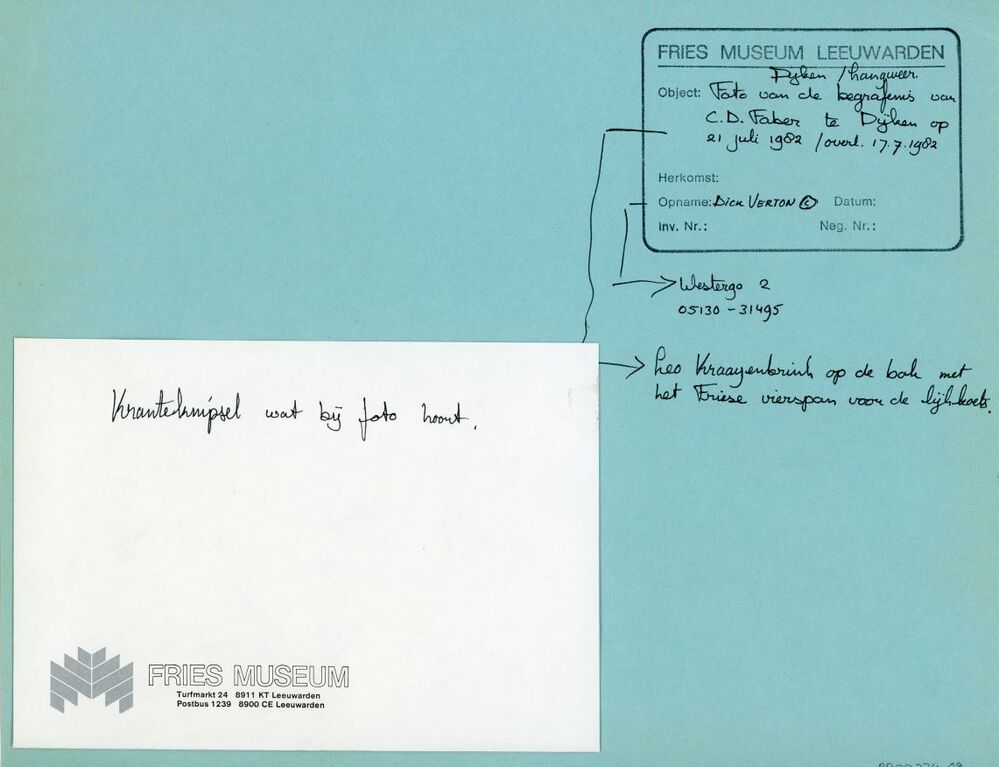 FRIES MUSEUM LEEUWARDEN
Dijken / Langweer.
Object: Foto van de begrafenis van
C.D. Faber te Dijken op
21 juli 1982 / overl. 17.7.1982
Herkomst:
Opname: Dick Verton © Datum:
Inv. Nr.: Neg. Nr.:
Westergo 2
05130 - 31495
Leo Kraayenbrink op de bok met
het Friese vierspan voor de lijkkoets.
Kranteknipsel wat bij foto hoort.
FRIES MUSEUM
Turfmarkt 24 8911 KT Leeuwarden
Postbus 1239 8900 CE Leeuwarden